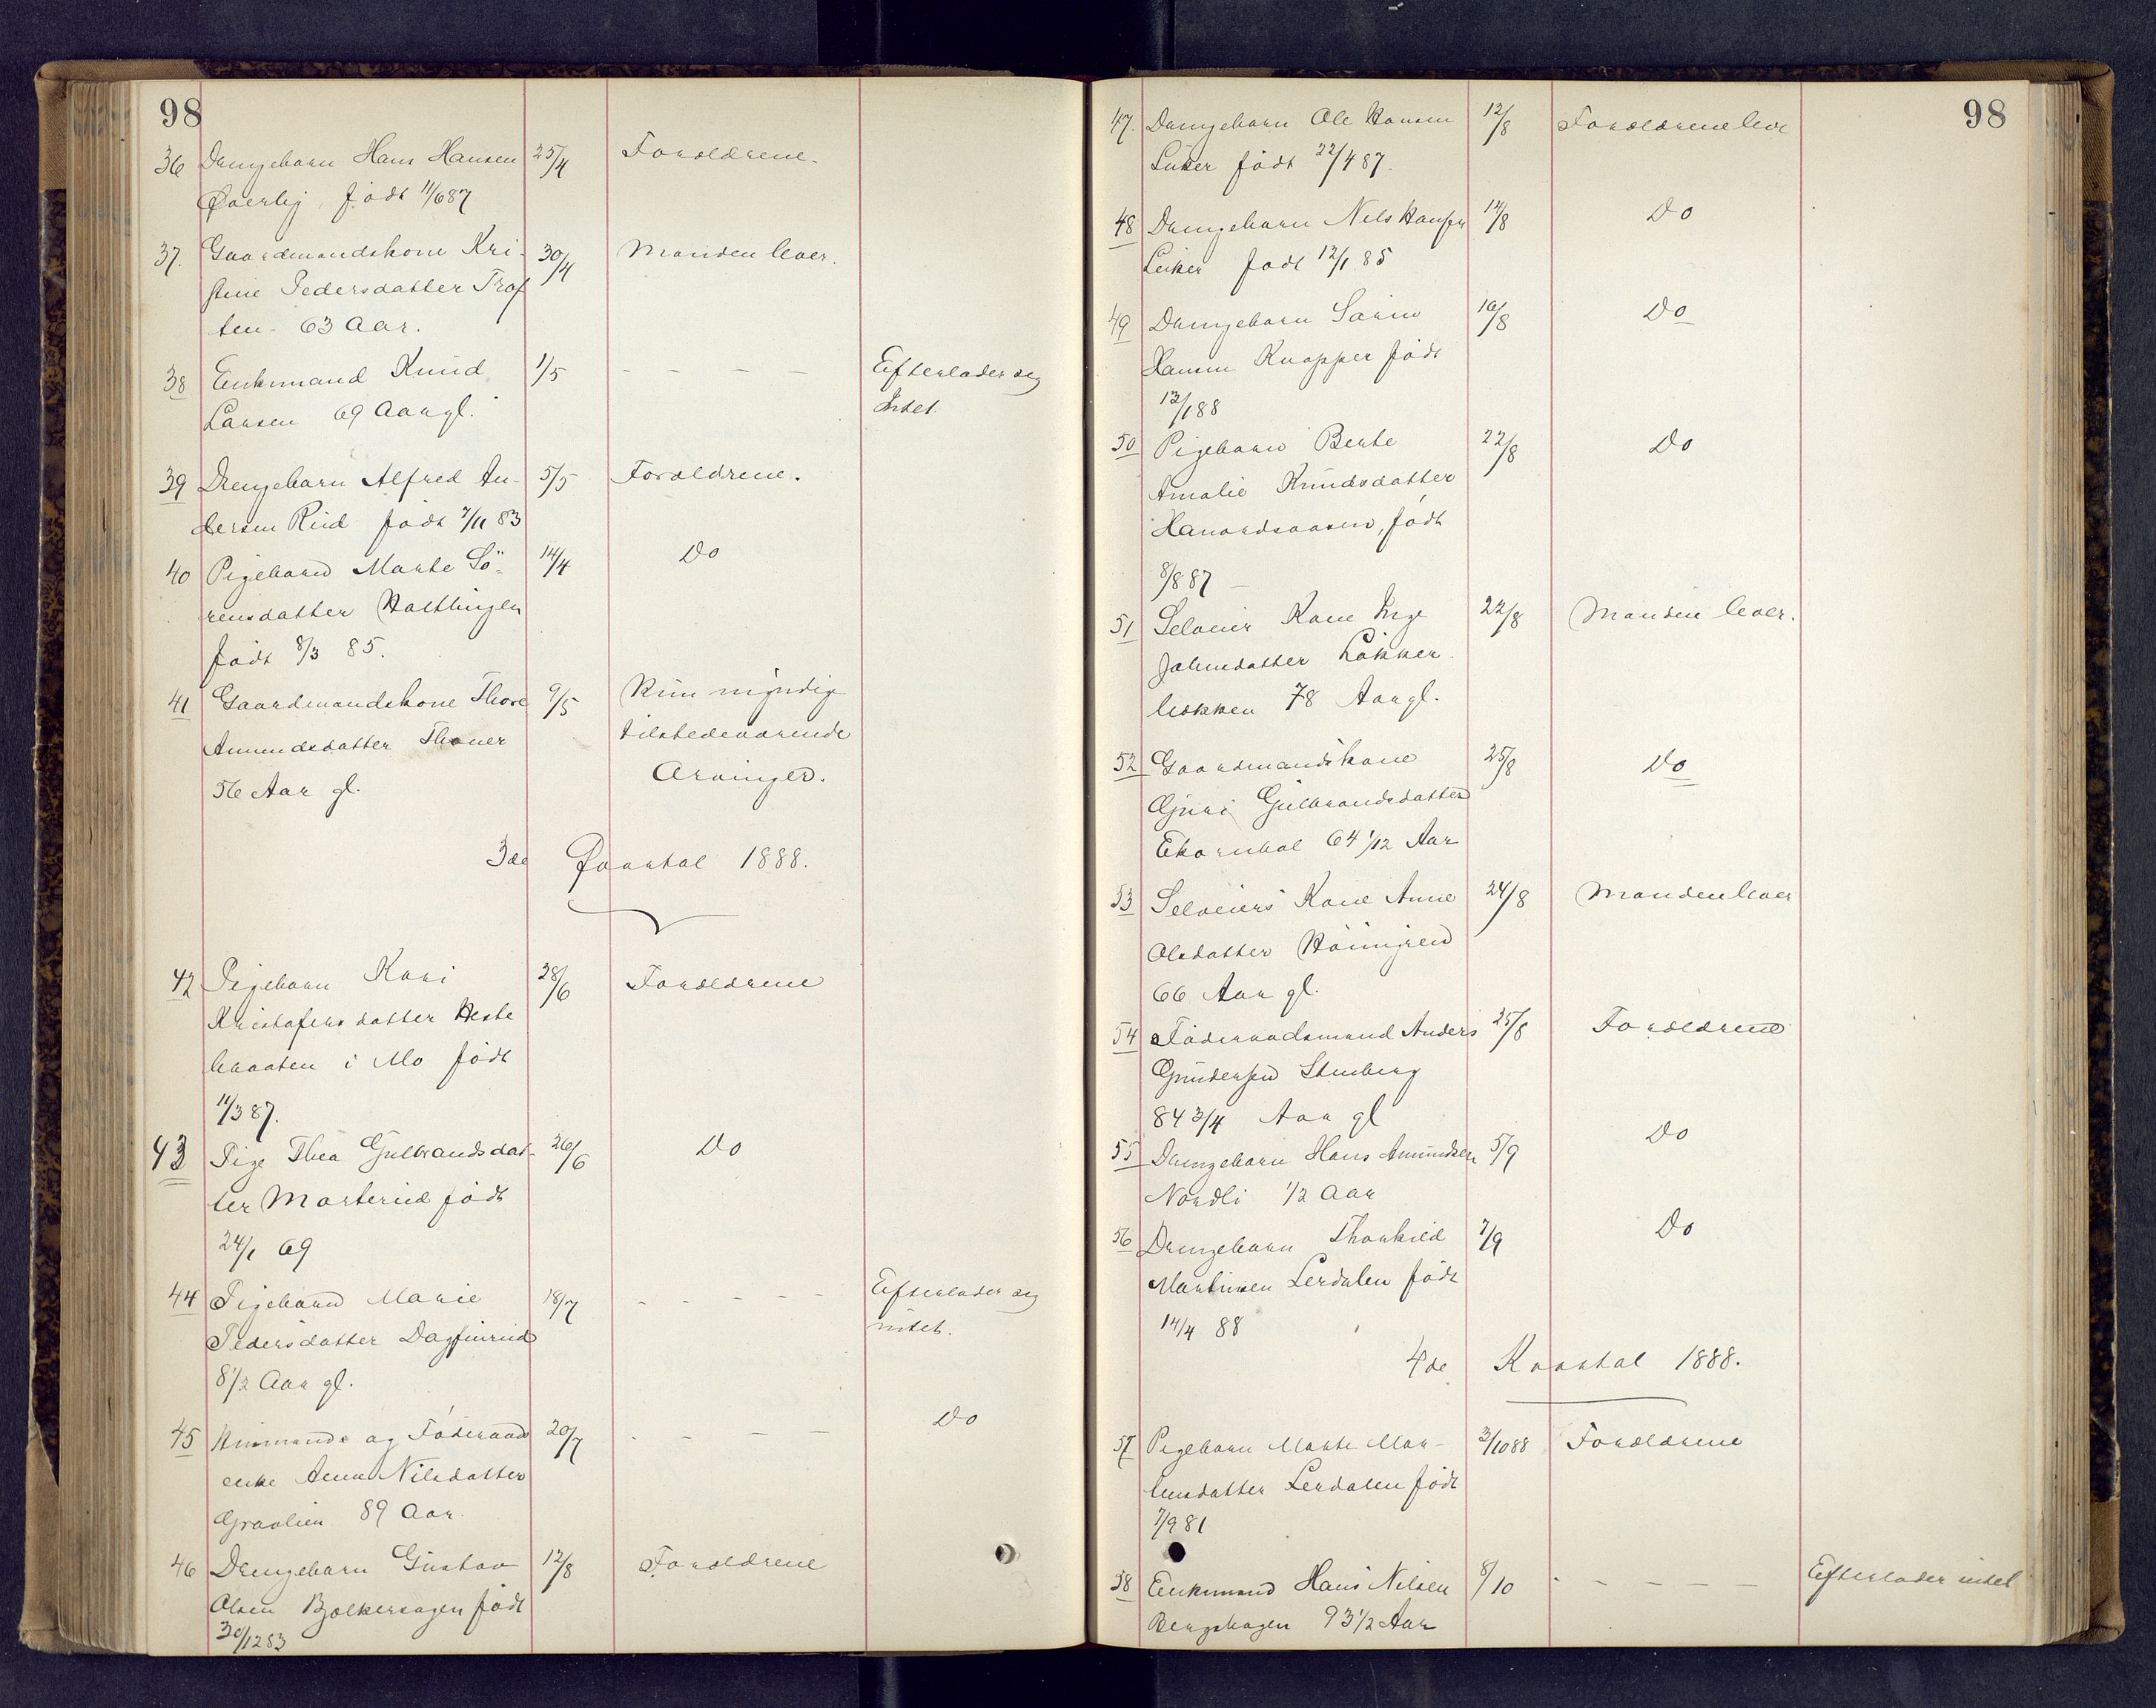 98
36 Drengebarn Hans Hansen 25/4 Forældrene.
Øverby, født 11/6 87
37. Gaardmandskone Kri- 30/4 Manden lever.
stine Pedersdatter Trof
ten - 63 Aar.
38 Enkemand Knud 1/5 - - - - Efterlader sig
Larsen 69 Aar gl. Intet.
39 Drengebarn Alfred An- 5/5 Forældrene.
dersen Rud født 7/11 83
40 Pigebarn Marte Sö- 14/4 Do
rensdatter
født 8/3 85.
41 Gaardmandskone Thore 9/5 Kun myndige
Amundsdatter tilstedeværende
56 Aar gl. Arvinger.
3de Qvartal 1888.
42 Pigebarn Kari 28/6 Forældrene
Kristofersdatter Heste
braaten i Mo født
11/3 87.
43 Pige Thea Gulbrandsdat- 26/6 Do
ter Morterud født
24/1 69
44 Pigebarn Marie 18/7 - - - - - Efterlader sig
Pedersdatter Dagfinrud intet.
8 1/2 Aar gl.
45 og Föderaads 20/7 - - - - Do
enke Anne Nilsdatter
Graalien 89 Aar.
46 Drengebarn Gustav 12/8 Forældrene
Olsen født
30/12 83
98
47. Drengebarn Ole Hansen 12/8 Forældrene lever
født 22/4 87.
48 Drengebarn Nils Hansen 14/8 Do
født 12/1 85
49 Drengebarn Sörin 16/8 Do
Hansen Knapper født
12/1 88
50 Pigebarn Berte 22/8 Do
Amalie Knudsdatter
Havardsaasen, født
8/8 87 -
51 Selveier Kone Inge 22/8 Manden lever.
Johnsdatter Løkker
løkken 78 Aar gl.
52 Gaardmandskone 25/8 Do
Guri Gulbrandsdatter
Ekornhol 64 1/12 Aar
53 Selveiers Kone Anne 24/8 Manden lever
Olsdatter
66 Aar gl.
54 Föderaadsmand Anders 25/8 Forældrene
Gundersen Stenberg
84 3/4 Aar gl
55 Drengebarn Hans Amundsen 5/9 Do
Nordli 1/2 Aar
56 Drengebarn Thorkild 7/9 Do
Martinsen Lerdalen født
14/4 88
4de Kvartal 1888.
57 Pigebarn Marte Mar- 3/10 88 Forældrene
tinsdatter Lerdalen født
7/9 81
58 Enkemand Hans Nilsen 8/10 - - - - - Efterlader intet
Berghagen 93 1/2 Aar